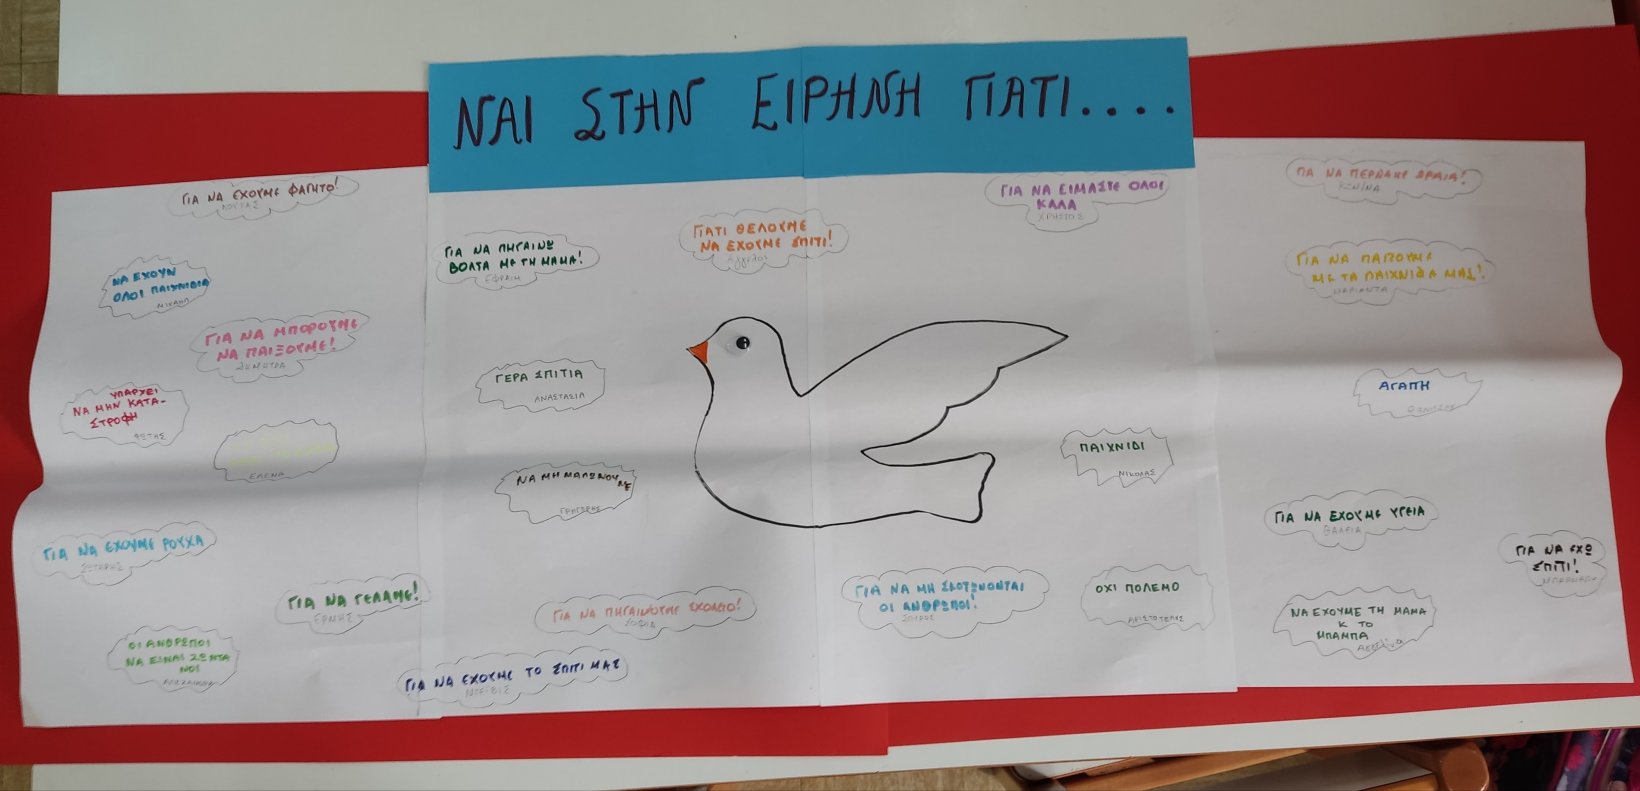 ΝΑΙ ΣΤΗΝ ΕΙΡΗΝΗ ΓΙΑΤΙ....
ΓΙΑ ΝΑ ΕΧΟΥΜΕ ΦΑΓΗΤΟ!
ΛΟΥΚΑΣ
ΝΑ ΕΧΟΥΝ
ΟΛΟΙ ΠΑΙΧΝΙΔΙΑ
ΜΙΧΑΗΛ
ΓΙΑ ΝΑ ΜΠΟΡΟΥΜΕ
ΝΑ ΠΑΙΞΟΥΜΕ!
ΔΗΜΗΤΡΑ
ΥΠΑΡΧΕΙ
ΝΑ ΜΗΝ ΚΑΤΑ-
ΣΤΡΟΦΗ
ΦΩΤΗΣ
ΕΛΕΝΑ
ΓΙΑ ΝΑ ΕΧΟΥΜΕ ΡΟΥΧΑ
ΣΩΤΗΡΗΣ
ΓΙΑ ΝΑ ΓΕΛΑΜΕ!
ΕΡΜΗΣ
ΟΙ ΑΝΘΡΩΠΟΙ
ΝΑ ΕΙΝΑΙ ΖΩΝΤΑ
ΝΟΙ
ΓΙΑ ΝΑ ΠΗΓΑΙΝΩ
ΒΟΛΤΑ ΜΕ ΤΗ ΜΑΜΑ!
ΕΦΡΑΙΜ
ΓΙΑΤΙ ΘΕΛΟΥΜΕ
ΝΑ ΕΧΟΥΜΕ ΣΠΙΤΙ!
Άγγελος
ΓΕΡΑ ΣΠΙΤΙΑ
ΑΝΑΣΤΑΣΙΑ
ΝΑ ΜΗ ΜΑΛΩΝΟΥ
ΜΕ
ΓΡΗΓΟΡΗΣ
ΓΙΑ ΝΑ ΠΗΓΑΙΝΟΥΜΕ ΣΧΟΛΕΙΟ!
ΣΟΦΙΑ
ΓΙΑ ΝΑ ΕΧΟΥΜΕ ΤΟ ΣΠΙΤΙ ΜΑΣ
ΓΙΑ ΝΑ ΕΙΜΑΣΤΕ ΟΛΟΙ
ΚΑΛΑ
ΧΡΗΣΤΟΣ
ΠΑΙΧΝΙΔΙ
ΝΙΚΟΛΑΣ
ΓΙΑ ΝΑ ΜΗ ΣΚΟΤΩΝΟΝΤΑΙ
ΟΙ ΑΝΘΡΩΠΟΙ!
ΣΠΥΡΟΣ
ΟΧΙ ΠΟΛΕΜΟ
ΑΡΙΣΤΟΤΕΛΗΣ
ΓΙΑ ΝΑ ΠΕΡΝΑΜΕ ΩΡΑΙΑ!
ΓΙΑ ΝΑ ΠΑΙΖΟΥΜΕ
ΜΕ ΤΑ ΠΑΙΧΝΙΔΙΑ ΜΑΣ!
ΜΑΡΙΑΝΤΑ
ΑΓΑΠΗ
ΘΑΝΑΣΗΣ
ΓΙΑ ΝΑ ΕΧΟΥΜΕ ΥΓΕΙΑ
ΘΑΛΕΙΑ
ΓΙΑ ΝΑ ΕΧΩ
ΣΠΙΤΙ!
ΝΑ ΕΧΟΥΜΕ ΤΗ ΜΑΜΑ
Κ ΤΟ
ΜΠΑΜΠΑ